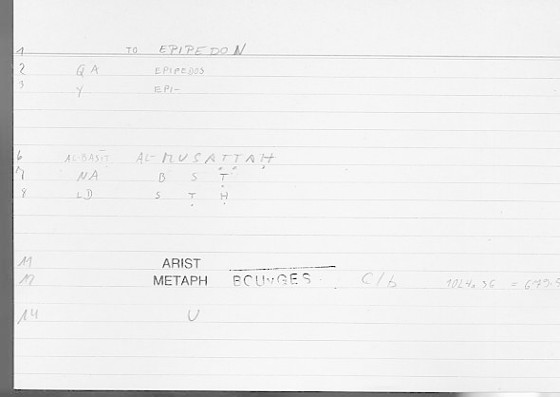 1 TO EPIPEDON
2 QA EPIPEDOS
3 Y EPI-
6 AL-BASĪT AL-MUSATTAH
7 NA B S Ṭ
8 LD S Ṭ Ḥ
11 ARIST
METAPH BOUYGES C/b
14 U